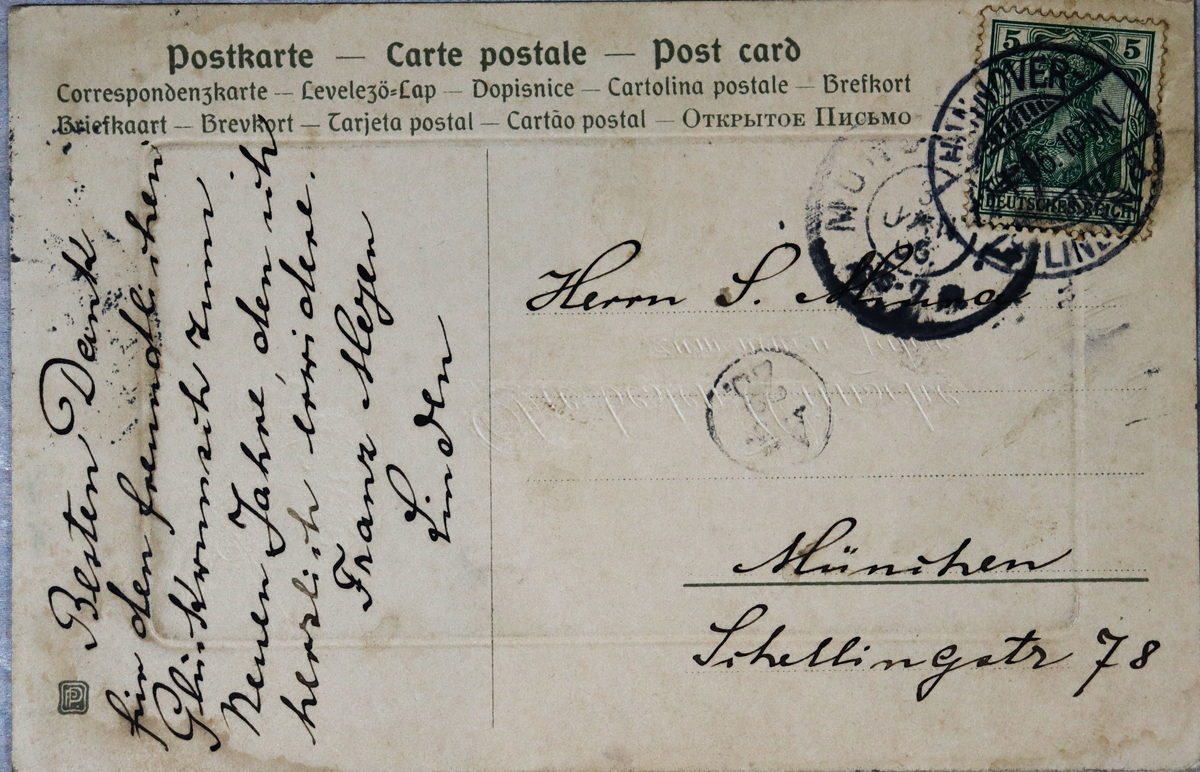 Postkarte — Carte postale — Post card
Correspondenzkarte — Levelezö-Lap — Dopisnice — Cartolina postale — Brefkort
Briefkaart — Brevkort — Tarjeta postal — Cartão postal — Открытое Письмо
Besten Dank
für den freundlichen
Glückwunsch zum
Neuen Jahre, den ich
herzlich erwidere.
Franz Mezen
Linden
5 5
DEUTSCHES REICH
HANNOVER
LINDEN
Herrn S.
zum neuen Jahre
Die besten Wünsche
München
Schellingstr 78